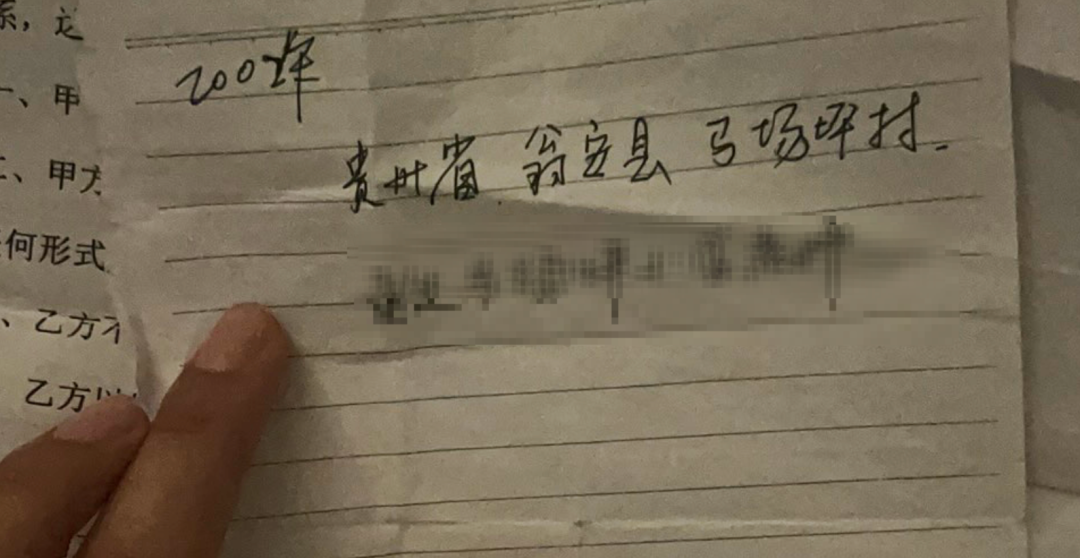 系，这
一、甲
、甲方
何形式
、乙方不
乙方以
2002年
贵州省 翁安县 马场坪村.